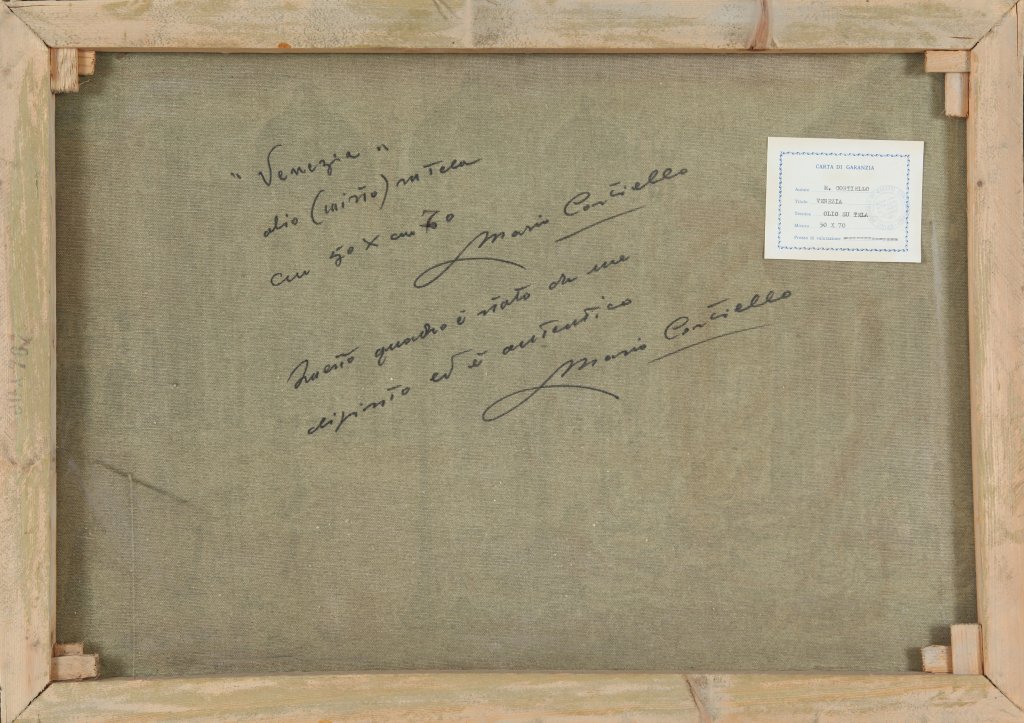 "Venezia"
olio (misto) su tela
cm 50 x cm 70
Mario Cortiello
Questo quadro è stato da me
dipinto ed è autentico
Mario Cortiello
CARTA DI GARANZIA
Autore M. CORTIELLO
Titolo VENEZIA
Tecnica OLIO SU TELA
Misura 50 X 70
Prezzo di valutazione